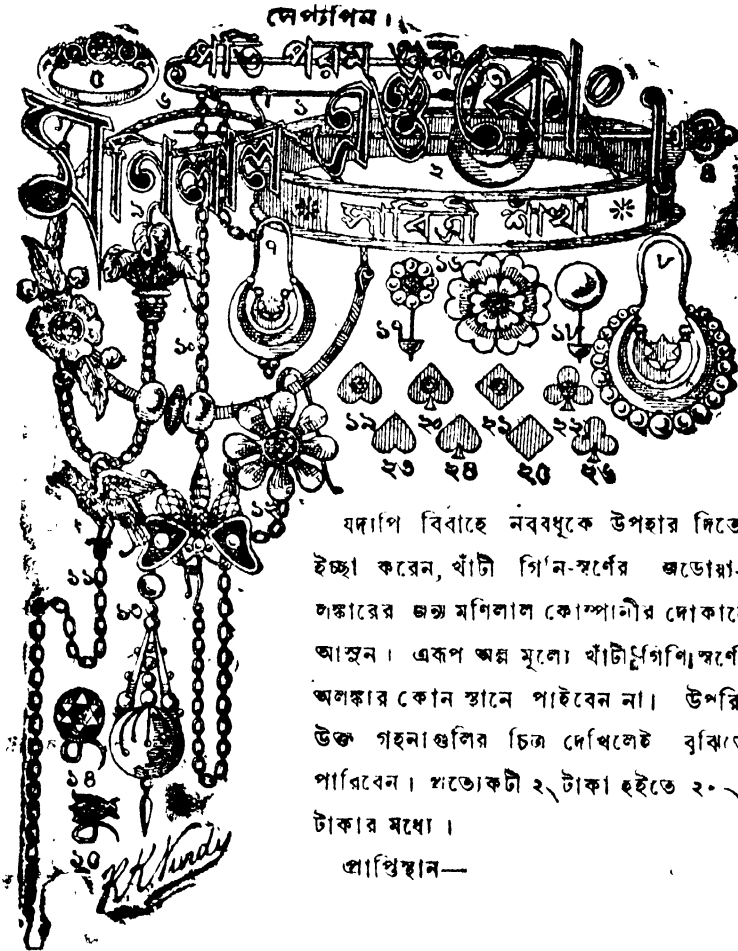 সেপ্যপিন।
পতি পরম গুরু
মণিলাল এণ্ড কোং
সাবিত্রী শাঁখা
৫
৬
৭
৮
৪
২
১০
১৬
১৭
১৮
১৯ ২০ ২১ ২২
২৩ ২৪ ২৫ ২৬
১২
১১
১৩
১৪
যদ্যপি বিবাহে নববধূকে উপহার দিতে
ইচ্ছা করেন, খাঁটী গিনি-স্বর্ণের জড়োয়া-
লঙ্কারের জন্য মণিলাল কোম্পানীর দোকানে
আসুন। এরূপ অল্প মূল্যে খাঁটী গিণি স্বর্ণের
অলঙ্কার কোন স্থানে পাইবেন না। উপরি
উক্ত গহনাগুলির চিত্র দেখিলেই বুঝিতে
পারিবেন। প্রত্যেকটী ২৲ টাকা হইতে ২০৲
টাকার মধ্যে।
প্রাপ্তিস্থান—
K.K. Nundy